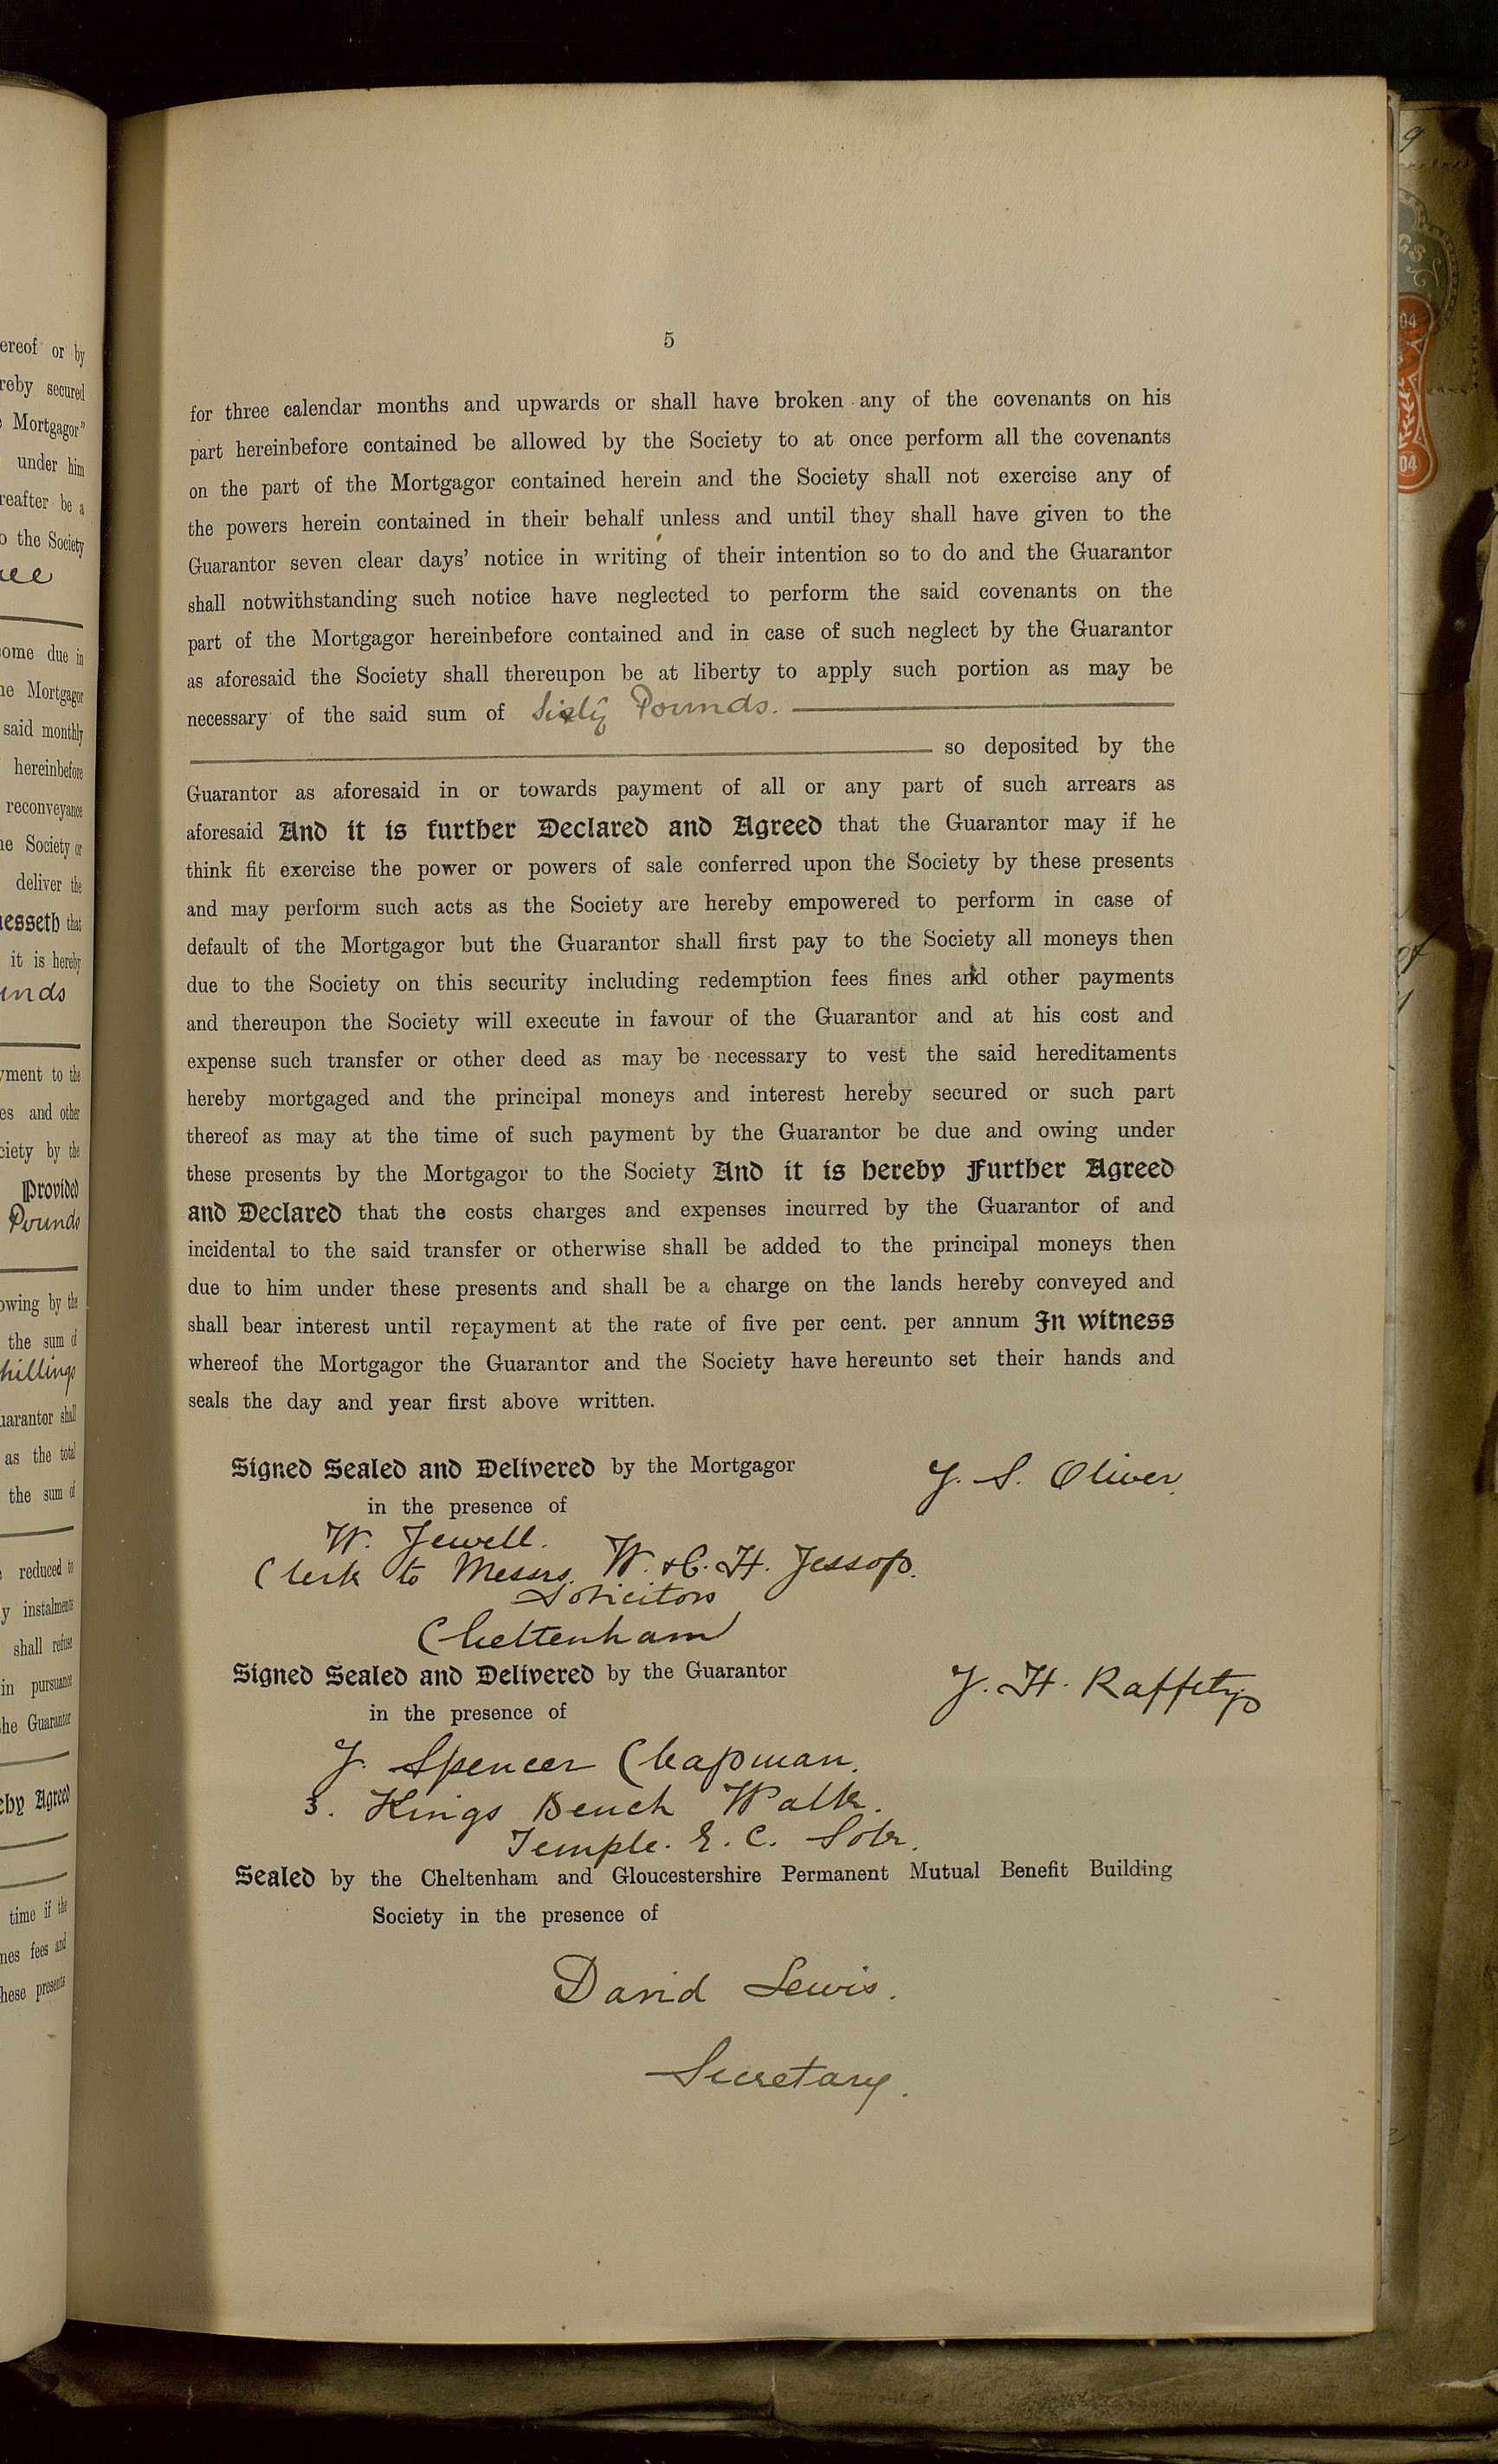 5
for three calendar months and upwards or shall have broken any of the covenants on his
part hereinbefore contained be allowed by the Society to at once perform all the covenants
on the part of the Mortgagor contained herein and the Society shall not exercise any of
the powers herein contained in their behalf unless and until they shall have given to the
Guarantor seven clear days' notice in writing of their intention so to do and the Guarantor
shall notwithstanding such notice have neglected to perform the said covenants on the
part of the Mortgagor hereinbefore contained and in case of such neglect by the Guarantor
as aforesaid the Society shall thereupon be at liberty to apply such portion as may be
necessary of the said sum of Sixty Pounds.
so deposited by the
Guarantor as aforesaid in or towards payment of all or any part of such arrears as
aforesaid And it is further Declared and Agreed that the Guarantor may if he
think fit exercise the power or powers of sale conferred upon the Society by these presents
and may perform such acts as the Society are hereby empowered to perform in case of
default of the Mortgagor but the Guarantor shall first pay to the Society all moneys then
due to the Society on this security including redemption fees fines and other payments
and thereupon the Society will execute in favour of the Guarantor and at his cost and
expense such transfer or other deed as may be necessary to vest the said hereditaments
hereby mortgaged and the principal moneys and interest hereby secured or such part
thereof as may at the time of such payment by the Guarantor be due and owing under
these presents by the Mortgagor to the Society And it is hereby Further Agreed
and Declared that the costs charges and expenses incurred by the Guarantor of and
incidental to the said transfer or otherwise shall be added to the principal moneys then
due to him under these presents and shall be a charge on the lands hereby conveyed and
shall bear interest until repayment at the rate of five per cent. per annum In witness
whereof the Mortgagor the Guarantor and the Society have hereunto set their hands and
seals the day and year first above written.
Signed Sealed and Delivered by the Mortgagor J. S. Oliver
in the presence of
W. Jewell.
Clerk to Messrs. W. & C. H. Jessop.
Solicitors
Cheltenham
Signed Sealed and Delivered by the Guarantor J. H. Raffety
in the presence of
J. Spencer Chapman.
3. Kings Bench Walk.
Temple. E. C. Solr.
Sealed by the Cheltenham and Gloucestershire Permanent Mutual Benefit Building
Society in the presence of
David Lewis.
Secretary.